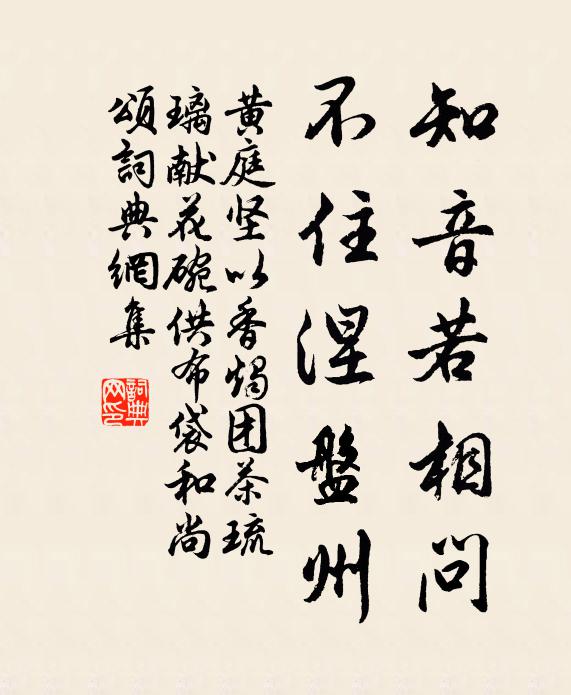 知音若相问
不住涅盤州
黄庭坚以香烛团茶琉
璃献花碗供布袋和尚
頌詞典網集
詞典网印